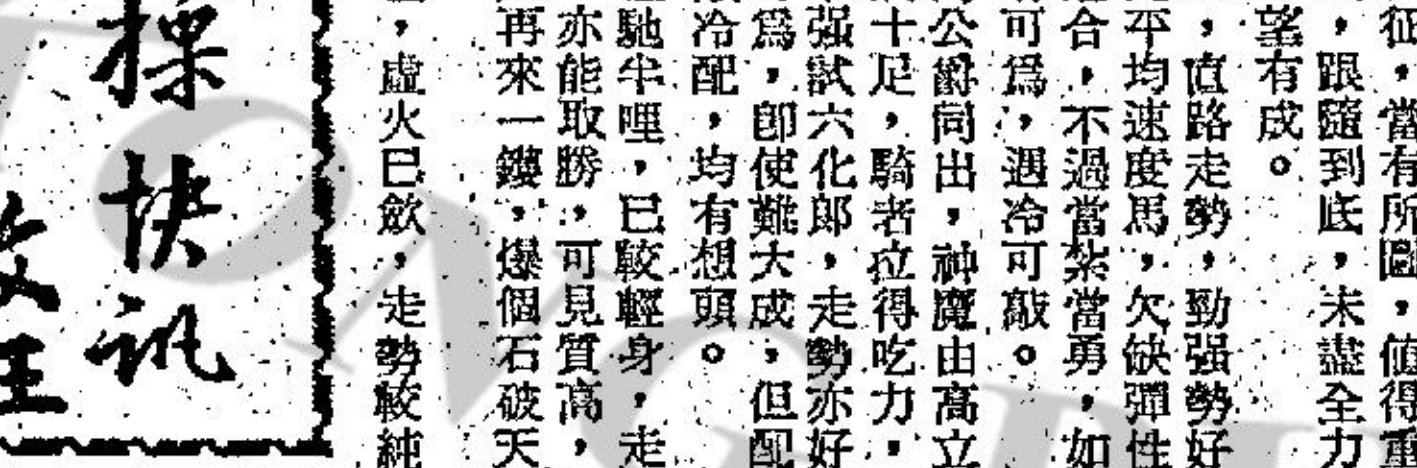 征，當有所圖，值得重
，跟隨到底，未盡全力
望有成。
，直路走勢，勁强勢好
平均速度馬，欠缺彈性
合，不過當紮當勇，如
可爲，遇冷可敲。
公爵同出，神魔由高立
十足，騎者拉得吃力，
强試六化郎，走勢亦好
爲，卽使難大成，但配
冷配，均有想頭。
馳半哩，已較輕身，走
亦能取勝，可見質高，
再來一鑊，爆個石破天
，虛火已歛，走勢較純
操快訊
王